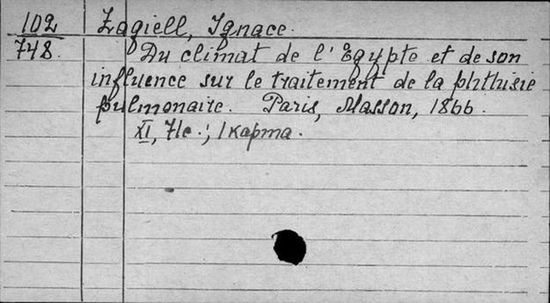 102 Zagiell, Ignace.
748. Du climat de l'Egypte et de son
influence sur le traitement de la phthisie
pulmonaire. Paris, Masson, 1866.
XI, 71c.; 1 карта.